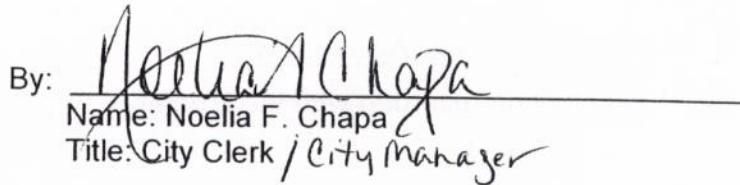 By: Noelia F Chapa
Name: Noelia F. Chapa
Title: City Clerk / City Manager